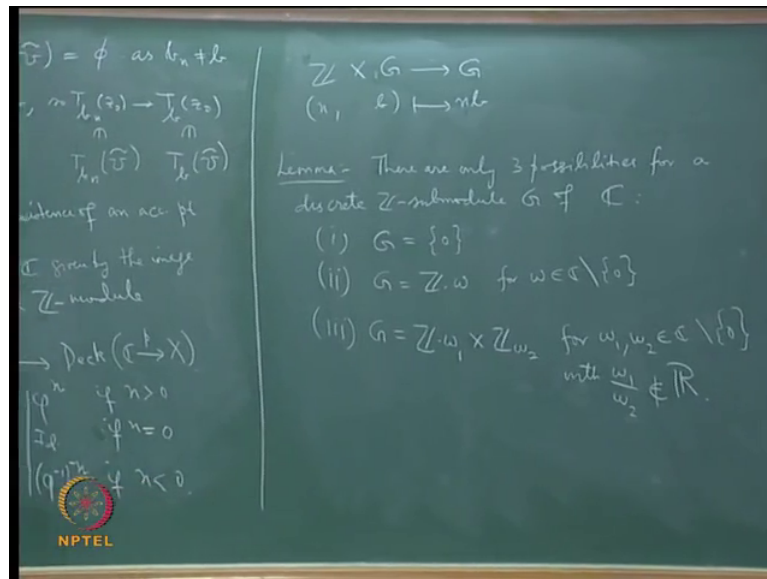 Ũ) = ϕ as b_n ≠ b
T_{b_n}(z_0) → T_b(z_0)
T_{b_n}(Ũ) T_b(Ũ)
existence of an acc. pt
ℂ given by the image
ℤ-module
→ Deck(ℂ →^p X)
φ^n if n>0
I_d if n=0
(φ^{-1})^{-n} if n<0
NPTEL
ℤ × G ⟶ G
(n, b) ⟼ nb
Lemma- There are only 3 possibilities for a
discrete ℤ-submodule G of ℂ:
(i) G = {0}
(ii) G = ℤ·w for w∈ℂ\{0}
(iii) G = ℤ·w_1 × ℤw_2 for w_1, w_2 ∈ ℂ\{0}
with w_1/w_2 ∉ ℝ.